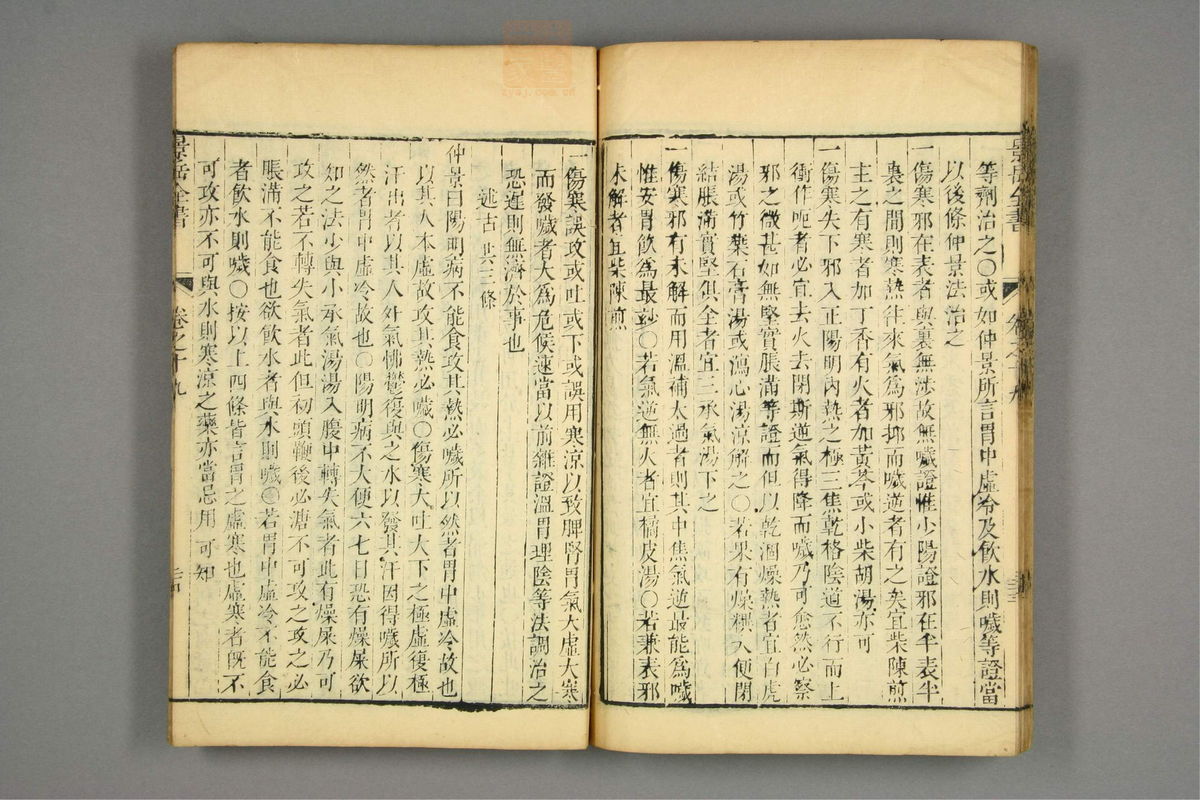 等劑治之〇或如仲景所言胃中虛冷及飲水則噦等證當
以後條仲景法治之
一傷寒邪在表者與裏無涉故無噦證惟少陽證邪在半表半
裏之間則寒熱往來氣爲邪抑而噦逆者有之矣宜柴陳煎
主之有寒者加丁香有火者加黃芩或小柴胡湯亦可
一傷寒失下邪入正陽明內熱之極三焦乾格陰道不行而上
衝作呃者必宜去火去閉斯逆氣得降而噦乃可愈然必察
邪之微甚如無堅實脹滿等證而但以乾涸燥熱者宜白虎
湯或竹葉石膏湯或瀉心湯涼解之〇若果有燥糞大便閉
結脹滿實堅俱全者宜三承氣湯下之
一傷寒邪有未解而用溫補太過者則其中焦氣逆最能爲噦
惟安胃飲爲最妙〇若氣逆無火者宜橘皮湯〇若兼表邪
未解者宜柴陳煎
景岳全書
卷之十九
一傷寒誤攻或吐或下或誤用寒涼以致脾腎胃氣大虛大寒
而發噦者大爲危候速當以前雜證溫胃理陰等法調治之
恐遲則無濟於事也
述古 共三條
仲景曰陽明病不能食攻其熱必噦所以然者胃中虛冷故也
以其人本虛故攻其熱必噦〇傷寒大吐大下之極虛復極
汗出者以其人外氣怫鬱復與之水以發其汗因得噦所以
然者胃中虛冷故也〇陽明病不大便六七日恐有燥屎欲
知之法少與小承氣湯湯入腹中轉失氣者此有燥屎乃可
攻之若不轉失氣者此但初頭鞕後必溏不可攻之攻之必
脹滿不能食也欲飲水者與水則噦〇若胃中虛冷不能食
者飲水則噦〇按以上四條皆言胃之虛寒也虛寒者旣不
可攻亦不可與水則寒涼之藥亦當忌用可知
景岳全書
卷之十九